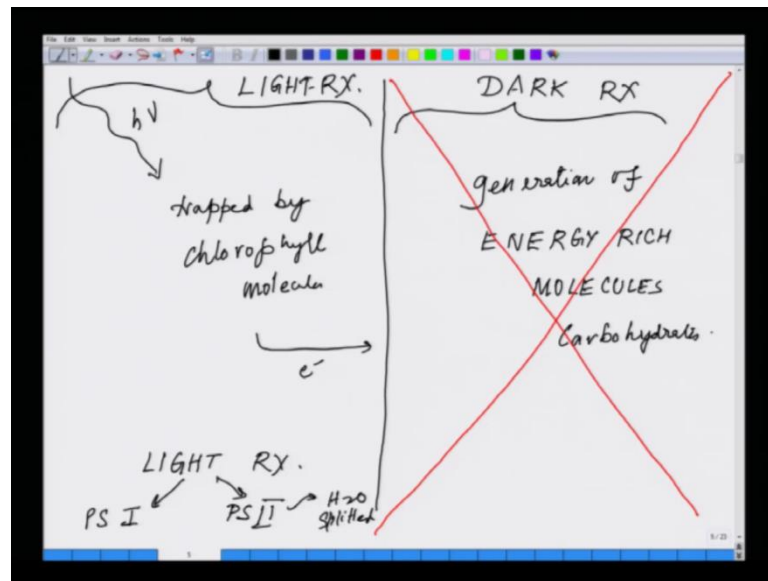 File Edit View Insert Actions Tools Help
LIGHT-RX.
hν
trapped by
chlorophyll
molecules
e⁻
LIGHT RX.
PS I
PS II
H2O
splitted
DARK RX
generation of
ENERGY RICH
MOLECULES
Carbohydrates.
5
5/23